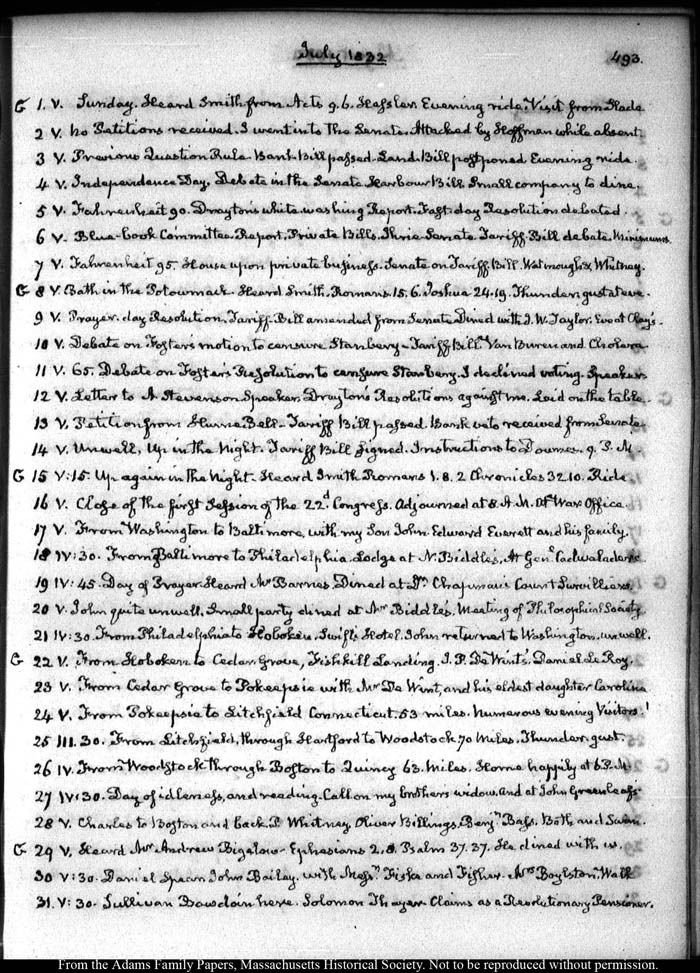 July 1832
493.
G 1. V. Sunday. Heard Smith from Acts 9.6. Hassler. Evening ride. Visit from Slade
2 V. No Petitions received. I went into the Senate. Attacked by Hoffman while absent.
3 V. Previous Question Rule. Bank Bill passed. Land Bill postponed Evening ride.
4 V. Independence Day. Debate in the Senate Harbour Bill. Small company to dine.
5 V. Fahrenheit 90. Drayton's white-washing Report. Fast-day Resolution debated.
6 V. Blue-book Committee Report. Private Bills. Senate Tariff Bill debate. Minimums
7 V. Fahrenheit 95. House upon private business. Senate on Tariff Bill. Watmough & Whitney.
G 8 V. Bath in the Potowmack. Heard Smith. Romans 15.6. Joshua 24.19. Thunder gust at eve.
9 V. Prayer-day Resolution. Tariff Bill amended from Senate. Dined with J. W. Taylor. Eve at Clay's
10 V. Debate on Foster's motion to censure Stanbery—Tariff Bill. Van Buren and Cholera
11 V. 65. Debate on Foster's Resolution to censure Stanbery. I declined voting. Speaker
12 V. Letter to A Stevenson Speaker. Drayton's Resolutions against me. Laid on the table.
13 V. Petition from Bell. Tariff Bill passed. Bank veto received from Senate
14 V. Unwell. Up in the Night. Tariff Bill signed. Instructions to Downes. 9. P. M.
G 15 V:15. Up again in the Night. Heard Smith Romans 1.8. 2 Chronicles 32.10. Ride
16 V. Close of the first Session of the 22d Congress. Adjourned at 8. A.M. At War Office.
17 V. From Washington to Baltimore, with my Son John. Edward Everett and his family.
18 IV:30. From Baltimore to Philadelphia. Lodge at N. Biddle's. At Genl Cadwalader's
19 IV:45. Day of Prayer. Heard Mr Barnes. Dined at Dr Chapman's Count Survilliers
20 V. John quite unwell. Small party dined at Mr Biddle's. Meeting of Philosophical Society
21 IV:30. From Philadelphia to Hoboken. Swift's Hotel. John returned to Washington. unwell.
G 22 V. From Hoboken to Cedar Grove, Fishkill Landing. J. P. De Wint's. Daniel Le Roy.
23 V. From Cedar Grove to Pokeepsie with Mr De Wint, and his eldest daughter Carolina
24 V. From Pokeepsie to Litchfield Connecticut. 53 miles. Numerous evening Visitors.
25 III.30. From Litchfield, through Hartford to Woodstock 70 Miles. Thunder gust.
26 IV. From Woodstock through Boston to Quincy 63. Miles. Home happily at 6 P.M.
27 IV:30. Day of idleness, and reading. Call on my brothers widow. And at John Greenleaf's
28 V. Charles to Boston and back. P. Whitney Oliver Billings. Benjn Bass. Bath and Swim.
G 29 V. Heard Mr Andrew Bigelow—Ephesians 2.8. Psalm 37.37. He dined with us.
30 V:30. Daniel Spear. John Bailey. with Messrs Fiske and Fisher. Mrs Boylston. Walk
31. V:30. Sullivan Bawdoin here. Solomon Thayer Claims as a Revolutionary Pensioner.
From the Adams Family Papers, Massachusetts Historical Society. Not to be reproduced without permission.